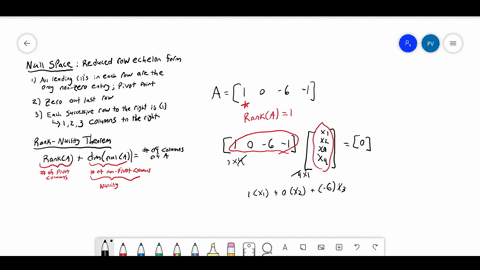 Null Space : Reduced row echelon form
1) All leading 1's in each row are the
only non-zero entry; Pivot point
2) Zero out last row
3) Each successive row to the right is (1)
↳ 1, 2, 3 columns to the right
Rank-Nullity Theorem
Rank(A) + dim(nul(A)) = # of columns of A
# of Pivot columns
# of non-pivot columns
Nullity
A = [1 0 -6 -1]
*
Rank(A) = 1
[1 0 -6 -1] [x1 x2 x3 x4] = [0]
1x4 4x1
1(x1) + 0(x2) + (-6)x3
PV